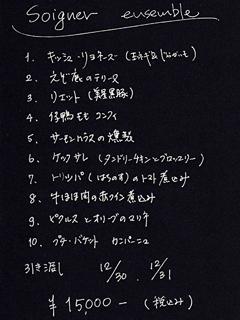 Soigner ensemble
1. キッシュ・リヨネーズ (玉ネギ & じゃがいも)
2. えぞ鹿のテリーヌ
3. リエット (黒豚)
4. 仔鴨モモ コンフィ
5. サーモンハラスの燻製
6. ケックサレ (タンドリーチキンとブロッコリー)
7. トリッパ (はちのす) のトマト煮込み
8. 牛ほほ肉の赤ワイン煮込み
9. ピクルスとオリーブのマリネ
10. プチ・バゲット カンパーニュ
引き渡し 12/30 . 12/31
¥ 15,000 - (税込み)